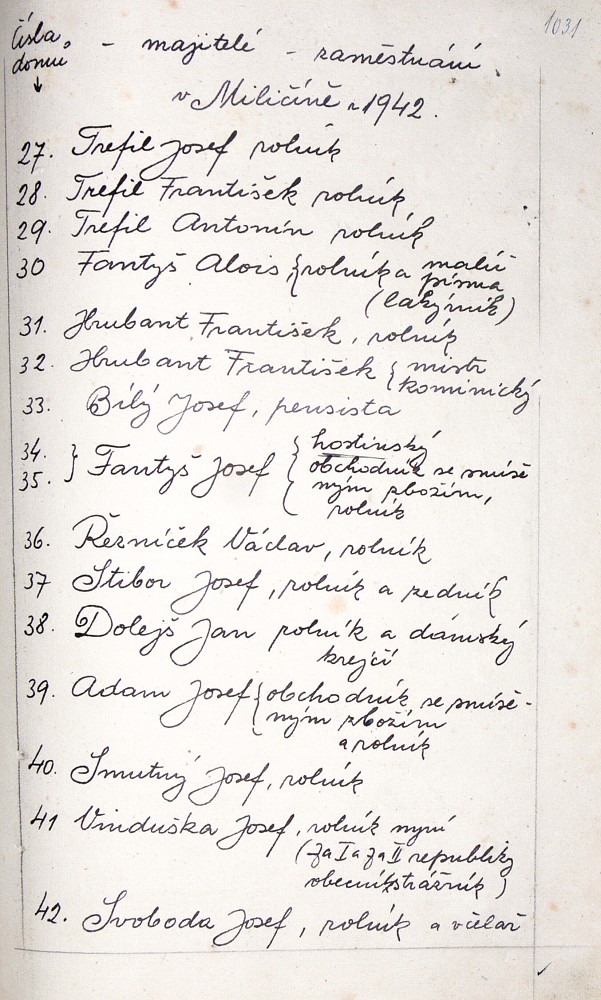 1031
Čísla domů - majitelé - zaměstnání
v Miličíně r 1942.
27. Trefil Josef rolník
28. Trefil František rolník
29. Trefil Antonín rolník
30 Fantyš Alois { rolník a malíř
písma
(lakýrník)
31. Hrubant František, rolník
32. Hrubant František { mistr
kominický
33. Bílý Josef, pensista
34. 35. } Fantyš Josef { hostinský
obchodník se smíše
ným zbožím,
rolník
36. Řezníček Václav, rolník
37 Stibor Josef, rolník a zedník
38. Dolejš Jan rolník a dámský
krejčí
39. Adam Josef { obchodník se smíše-
ným zbožím
a rolník
40. Smutný Josef, rolník
41 Vinduška Josef, rolník nyní
(za I a za II republiky
obecní strážník)
42. Svoboda Josef, rolník a včelař